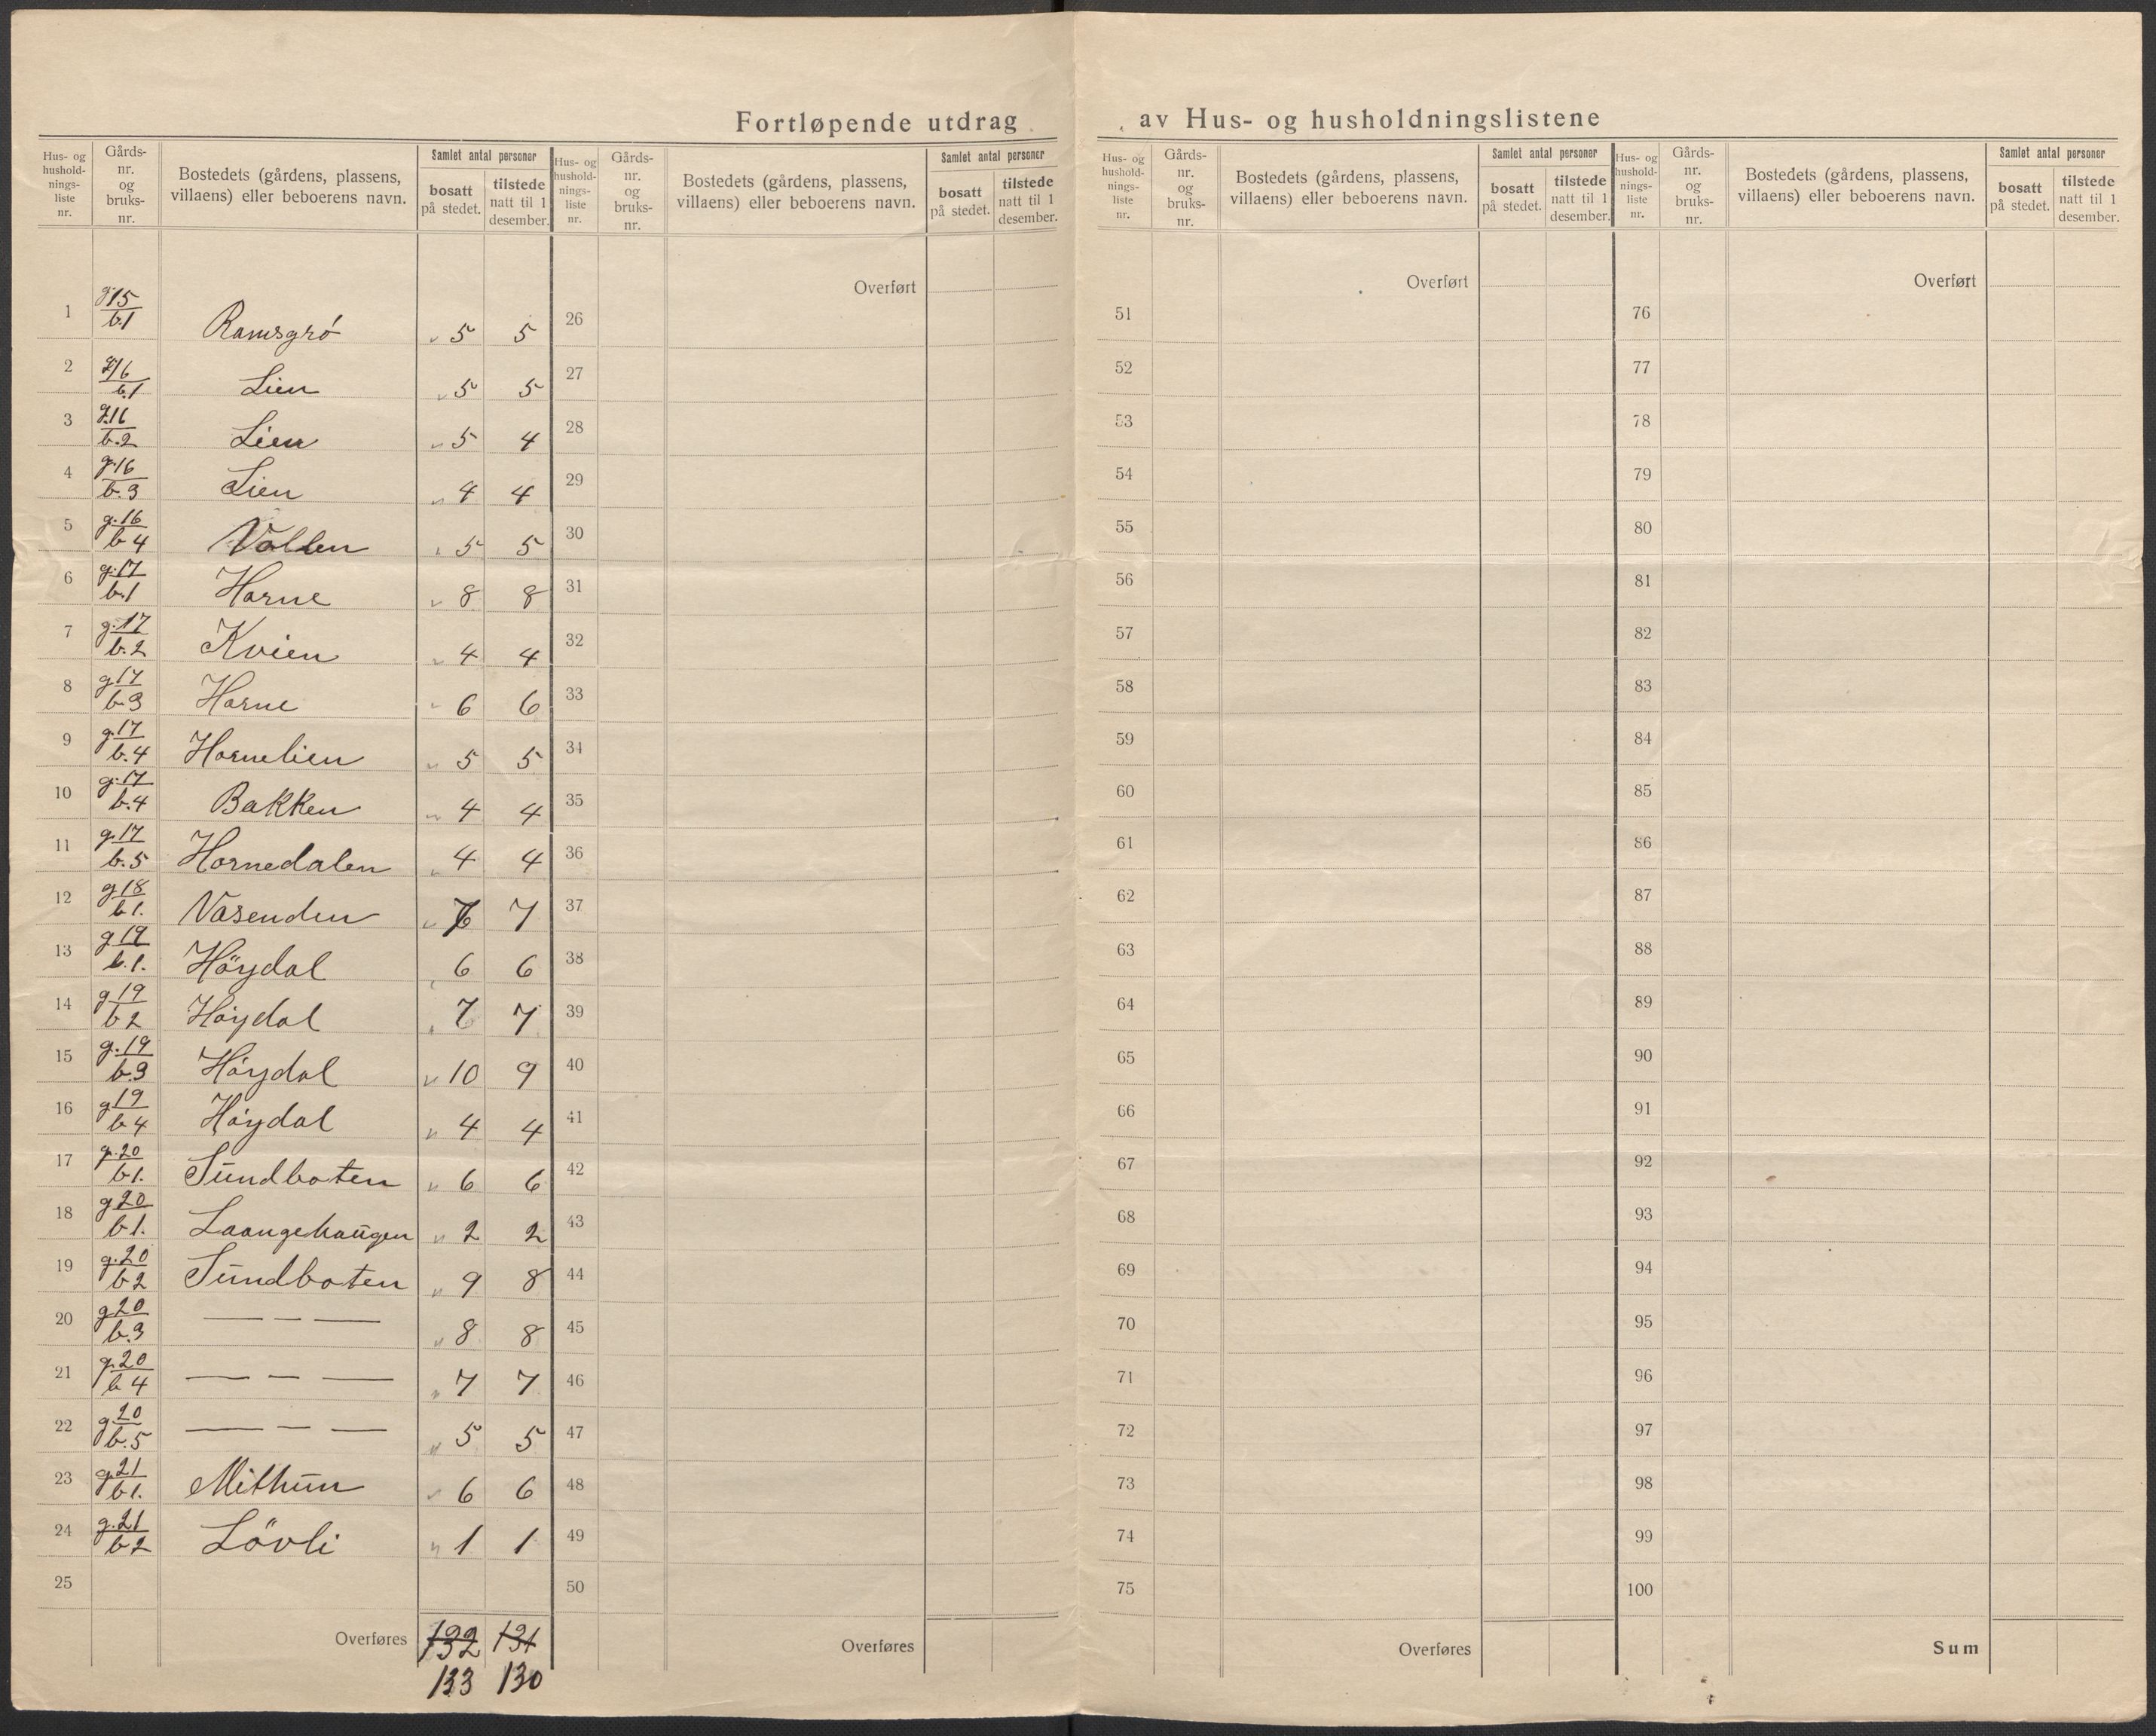 Fortløpende utdrag av Hus- og husholdningslistene
Hus- og hushold-nings-liste nr.
Gårds-nr. og bruks-nr.
Bostedets (gårdens, plassens, villaens) eller beboerens navn.
Samlet antal personer
bosatt på stedet.
tilstede natt til 1 desember.
Hus- og hushold-nings-liste nr.
Gårds-nr. og bruks-nr.
Bostedets (gårdens, plassens, villaens) eller beboerens navn.
Samlet antal personer
bosatt på stedet.
tilstede natt til 1 desember.
Hus- og hushold-nings-liste nr.
Gårds-nr. og bruks-nr.
Bostedets (gårdens, plassens, villaens) eller beboerens navn.
Samlet antal personer
bosatt på stedet.
tilstede natt til 1 desember.
Hus- og hushold-nings-liste nr.
Gårds-nr. og bruks-nr.
Bostedets (gårdens, plassens, villaens) eller beboerens navn.
Samlet antal personer
bosatt på stedet.
tilstede natt til 1 desember.
1 g.15/b.1 Ramsgrø 5 5
2 g.16/b.1 Lien 5 5
3 g.16/b.2 Lien 5 4
4 g.16/b.3 Lien 4 4
5 g.16/b 4 Vollen 5 5
6 g.17/b.1 Horne 8 8
7 g.17/b.2 Kvien 4 4
8 g.17/b.3 Horne 6 6
9 g.17/b.4 Hornelien 5 5
10 g.17/b.4 Bakken 4 4
11 g.17/b.5 Hornedalen 4 4
12 g.18/b 1. Vasenden 7
13 g 19/b.1. Höydal 6 6
14 g 19/b 2 Höydal 7 7
15 g.19/b.3 Höydal 10 9
16 g 19/b 4 Höydal 4 4
17 g.20/b 1. Sundboten 6 6
18 g 20/b 1. Laangehaugen 2 2
19 g.20/b 2 Sundboten 9 8
20 g 20/b.3 — - — 8 8
21 g.20/b 4 — - — 7 7
22 g 20/b.5 — - — 5 5
23 g.21/b 1. Mithun 6 6
24 g.21/b 2 Lövli 1 1
25
Overføres 132 131
133 130
Overført
26
27
28
29
30
31
32
33
34
35
36
37
38
39
40
41
42
43
44
45
46
47
48
49
50
Overføres
Overført
51
52
53
54
55
56
57
58
59
60
61
62
63
64
65
66
67
68
69
70
71
72
73
74
75
Overføres
Overført
76
77
78
79
80
81
82
83
84
85
86
87
88
89
90
91
92
93
94
95
96
97
98
99
100
Sum